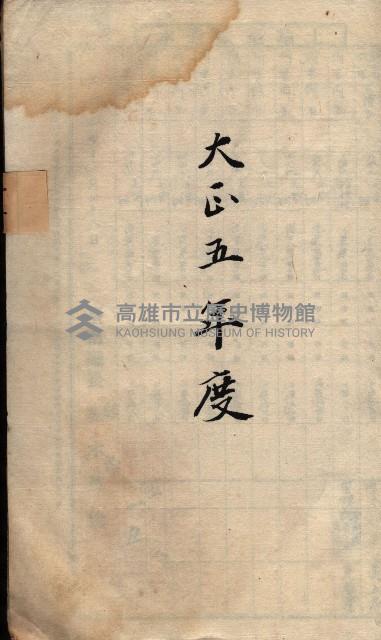 大正五年度
高雄市立歷史博物館
KAOHSIUNG MUSEUM OF HISTORY